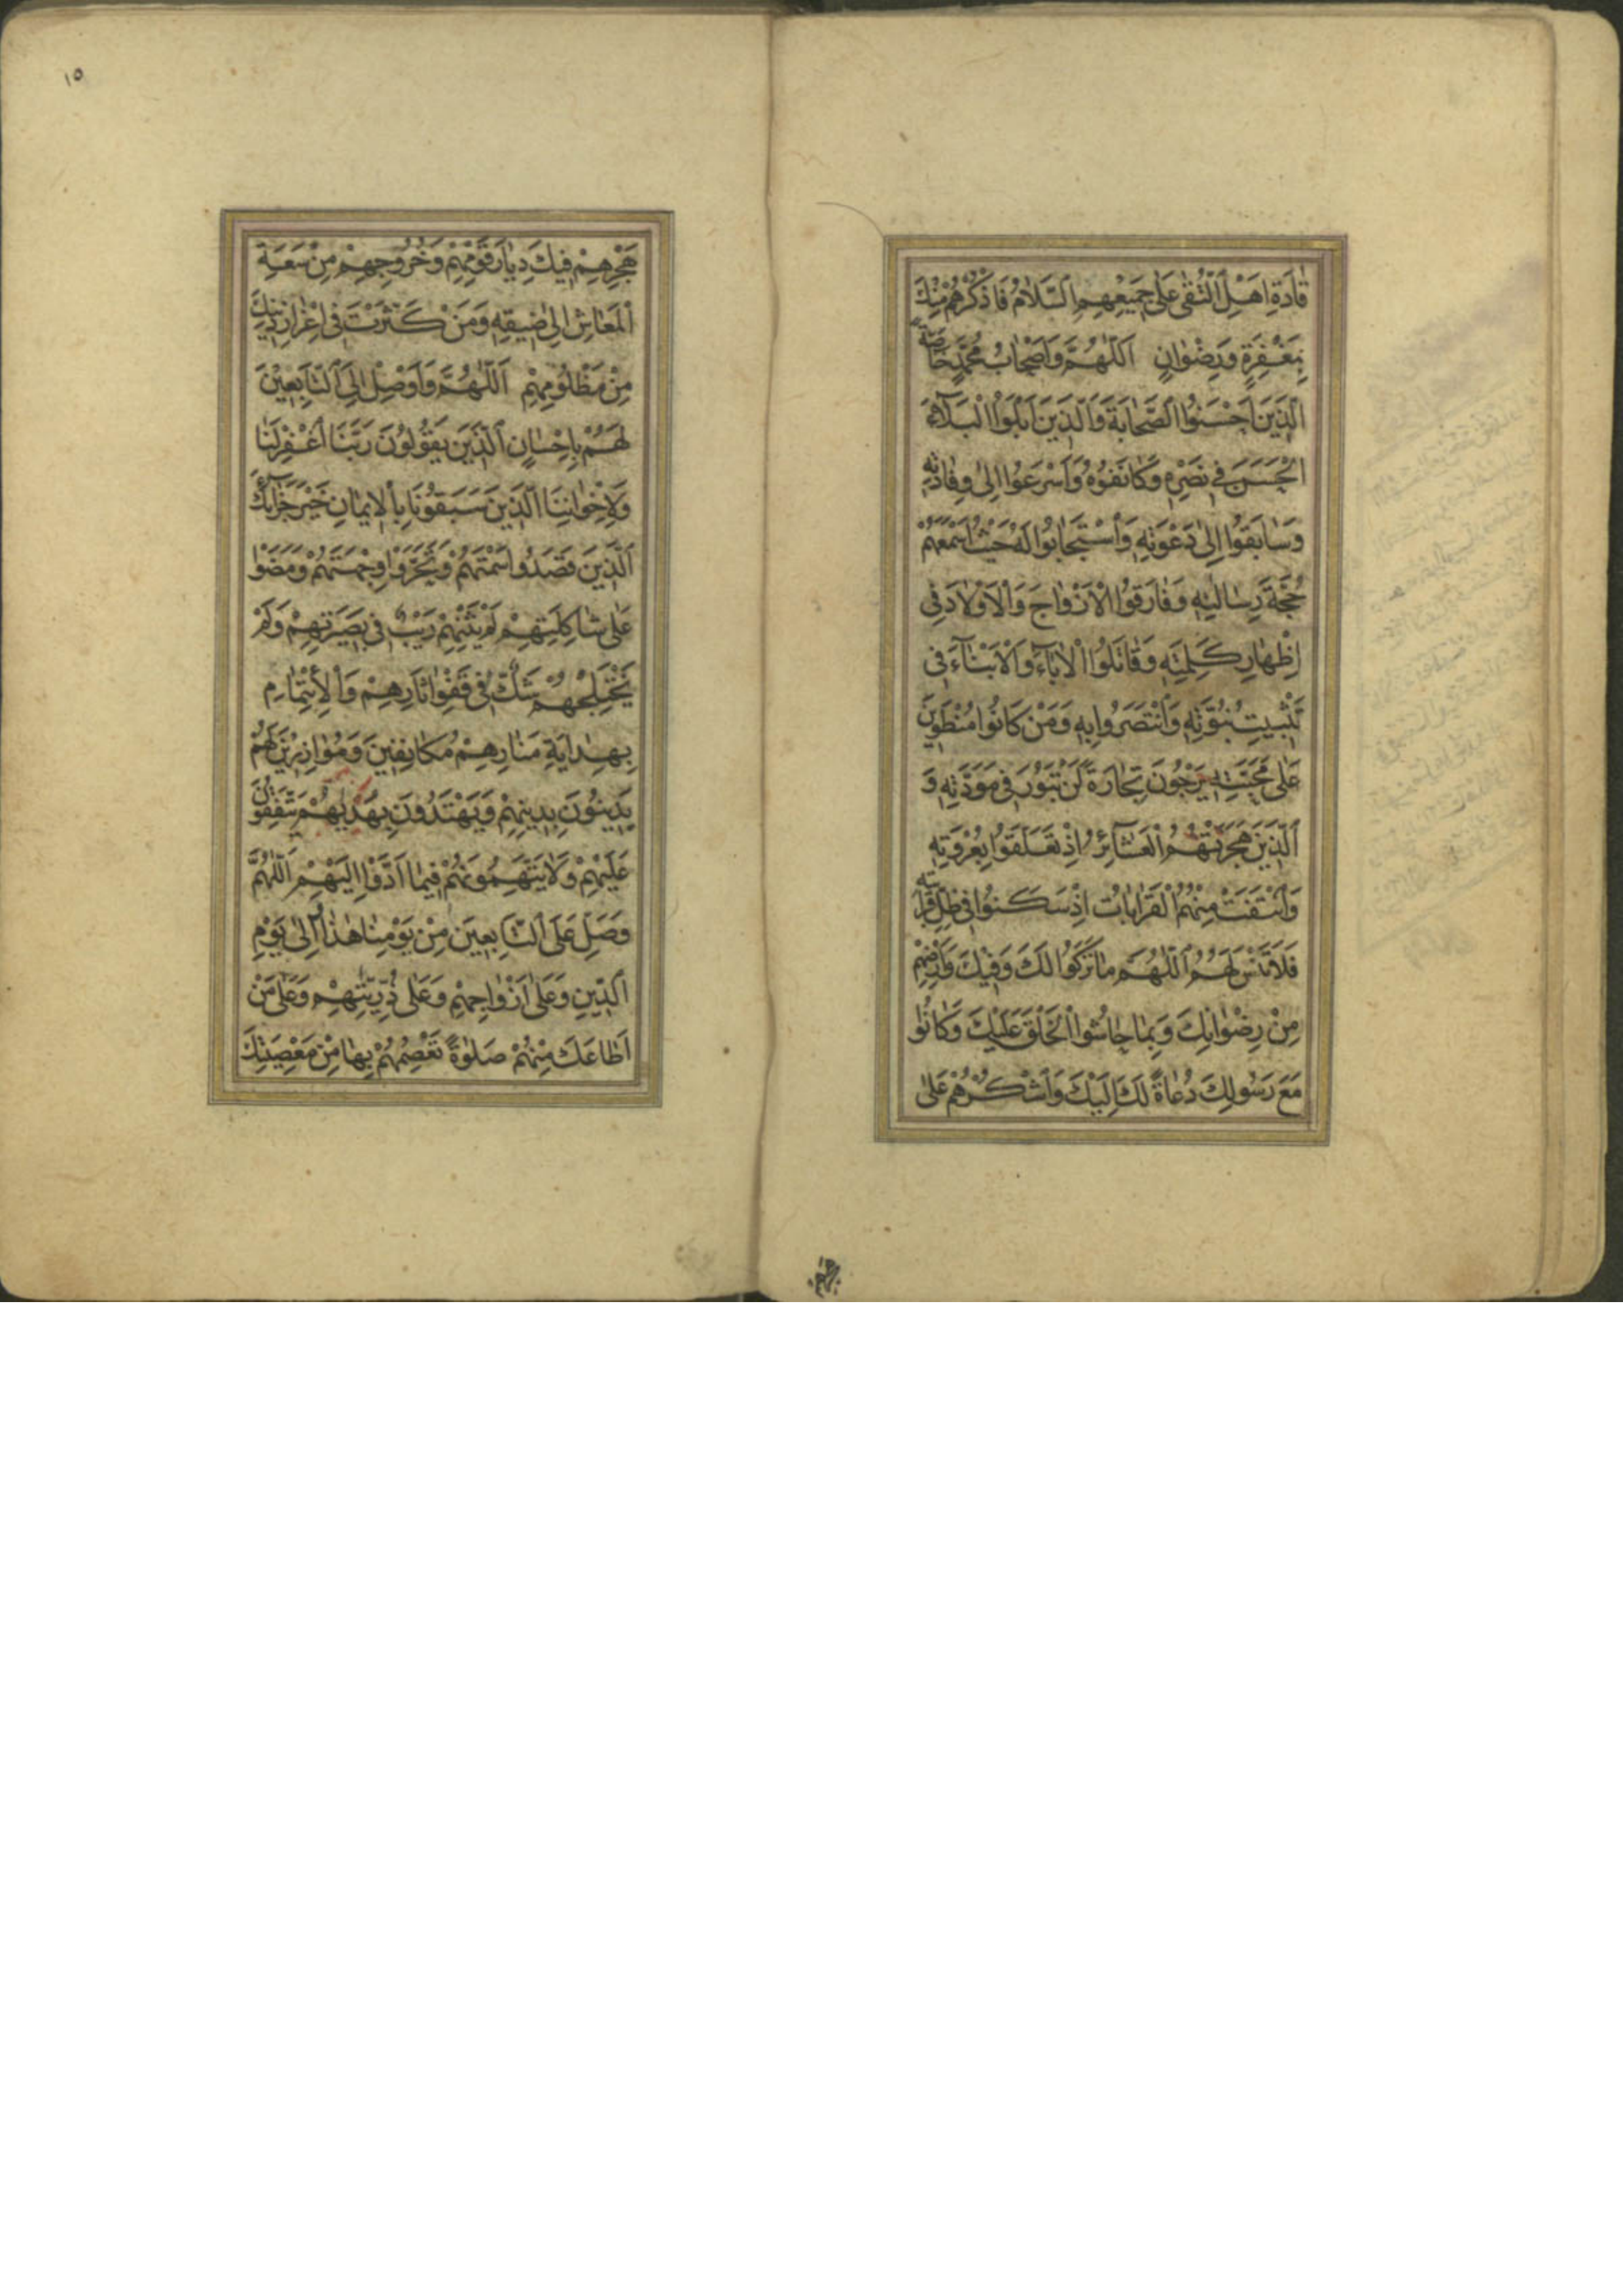 قَادَةِ اَهْلِ التُّقٰى عَلٰى جَمِيعِهِمُ السَّلَامُ فَاذْكُرْهُمْ مِنْكَ
بِمَغْفِرَةٍ وَرِضْوَانٍ اَللّٰهُمَّ وَاَصْحَابُ مُحَمَّدٍ خَاصَّةً
اَلَّذِينَ اَحْسَنُوا الصَّحَابَةَ وَالَّذِينَ اَبْلَوُا الْبَلَآءَ
الْحَسَنَ فِي نَصْرِهِ وَكَانَفُوهُ وَاَسْرَعُوا اِلٰى وِفَادَتِهِ
وَسَابَقُوا اِلٰى دَعْوَتِهِ وَاسْتَجَابُوا لَهُ حَيْثُ اَسْمَعَهُمْ
حُجَّةَ رِسَالَتِهِ وَفَارَقُوا الْاَزْوَاجَ وَالْاَوْلَادَ فِي
اِظْهَارِ كَلِمَتِهِ وَقَاتَلُوا الْاٰبَآءَ وَالْاَبْنَآءَ فِي
تَثْبِيتِ نُبُوَّتِهِ وَانْتَصَرُوا بِهِ وَمَنْ كَانُوا مُنْطَوِينَ
عَلٰى مَحَبَّتِهِ يَرْجُونَ تِجَارَةً لَنْ تَبُورَ فِي مَوَدَّتِهِ وَ
الَّذِينَ هَجَرَتْهُمُ الْعَشَآئِرُ اِذْ تَعَلَّقُوا بِعُرْوَتِهِ
وَانْتَفَتْ مِنْهُمُ الْقَرَابَاتُ اِذْ سَكَنُوا فِي ظِلِّ قَرَابَتِهِ
فَلَا تَنْسَ لَهُمُ اللّٰهُمَّ مَا تَرَكُوا لَكَ وَفِيكَ وَاَرْضِهِمْ
مِنْ رِضْوَانِكَ وَبِمَا حَاشُوا الْخَلْقَ عَلَيْكَ وَكَانُوا
مَعَ رَسُولِكَ دُعَاةً لَكَ اِلَيْكَ وَاشْكُرْهُمْ عَلٰى
هجرهم
١٥
هَجْرِهِمْ فِيكَ دِيَارَ قَوْمِهِمْ وَخُرُوجِهِمْ مِنْ سَعَةِ
الْمَعَاشِ اِلٰى ضِيقِهِ وَمَنْ كَثَّرْتَ فِي اِعْزَازِ دِينِكَ
مِنْ مَظْلُومِهِمْ اَللّٰهُمَّ وَاَوْصِلْ اِلَى التَّابِعِينَ
لَهُمْ بِاِحْسَانٍ الَّذِينَ يَقُولُونَ رَبَّنَا اغْفِرْ لَنَا
وَلِاِخْوَانِنَا الَّذِينَ سَبَقُونَا بِالْاِيمَانِ خَيْرَ جَزَآئِكَ
الَّذِينَ قَصَدُوا سَمْتَهُمْ وَتَحَرَّوْا وِجْهَتَهُمْ وَمَضَوْا
عَلٰى شَاكِلَتِهِمْ لَمْ يَثْنِهِمْ رَيْبٌ فِي بَصِيرَتِهِمْ وَلَمْ
يَخْتَلِجْهُمْ شَكٌّ فِي قَفْوِ اٰثَارِهِمْ وَالْاِئْتِمَامِ
بِهِدَايَةِ مَنَارِهِمْ مُكَانِفِينَ وَمُوَازِرِينَ لَهُمْ
يَدِينُونَ بِدِينِهِمْ وَيَهْتَدُونَ بِهَدْيِهِمْ يَتَّفِقُونَ
عَلَيْهِمْ وَلَا يَتَّهِمُونَهُمْ فِيمَا اَدَّوْا اِلَيْهِمْ اَللّٰهُمَّ
وَصَلِّ عَلَى التَّابِعِينَ مِنْ يَوْمِنَا هٰذَا اِلٰى يَوْمِ
الدِّينِ وَعَلٰى اَزْوَاجِهِمْ وَعَلٰى ذُرِّيَّتِهِمْ وَعَلٰى مَنْ
اَطَاعَكَ مِنْهُمْ صَلٰوةً تَعْصِمُهُمْ بِهَا مِنْ مَعْصِيَتِكَ